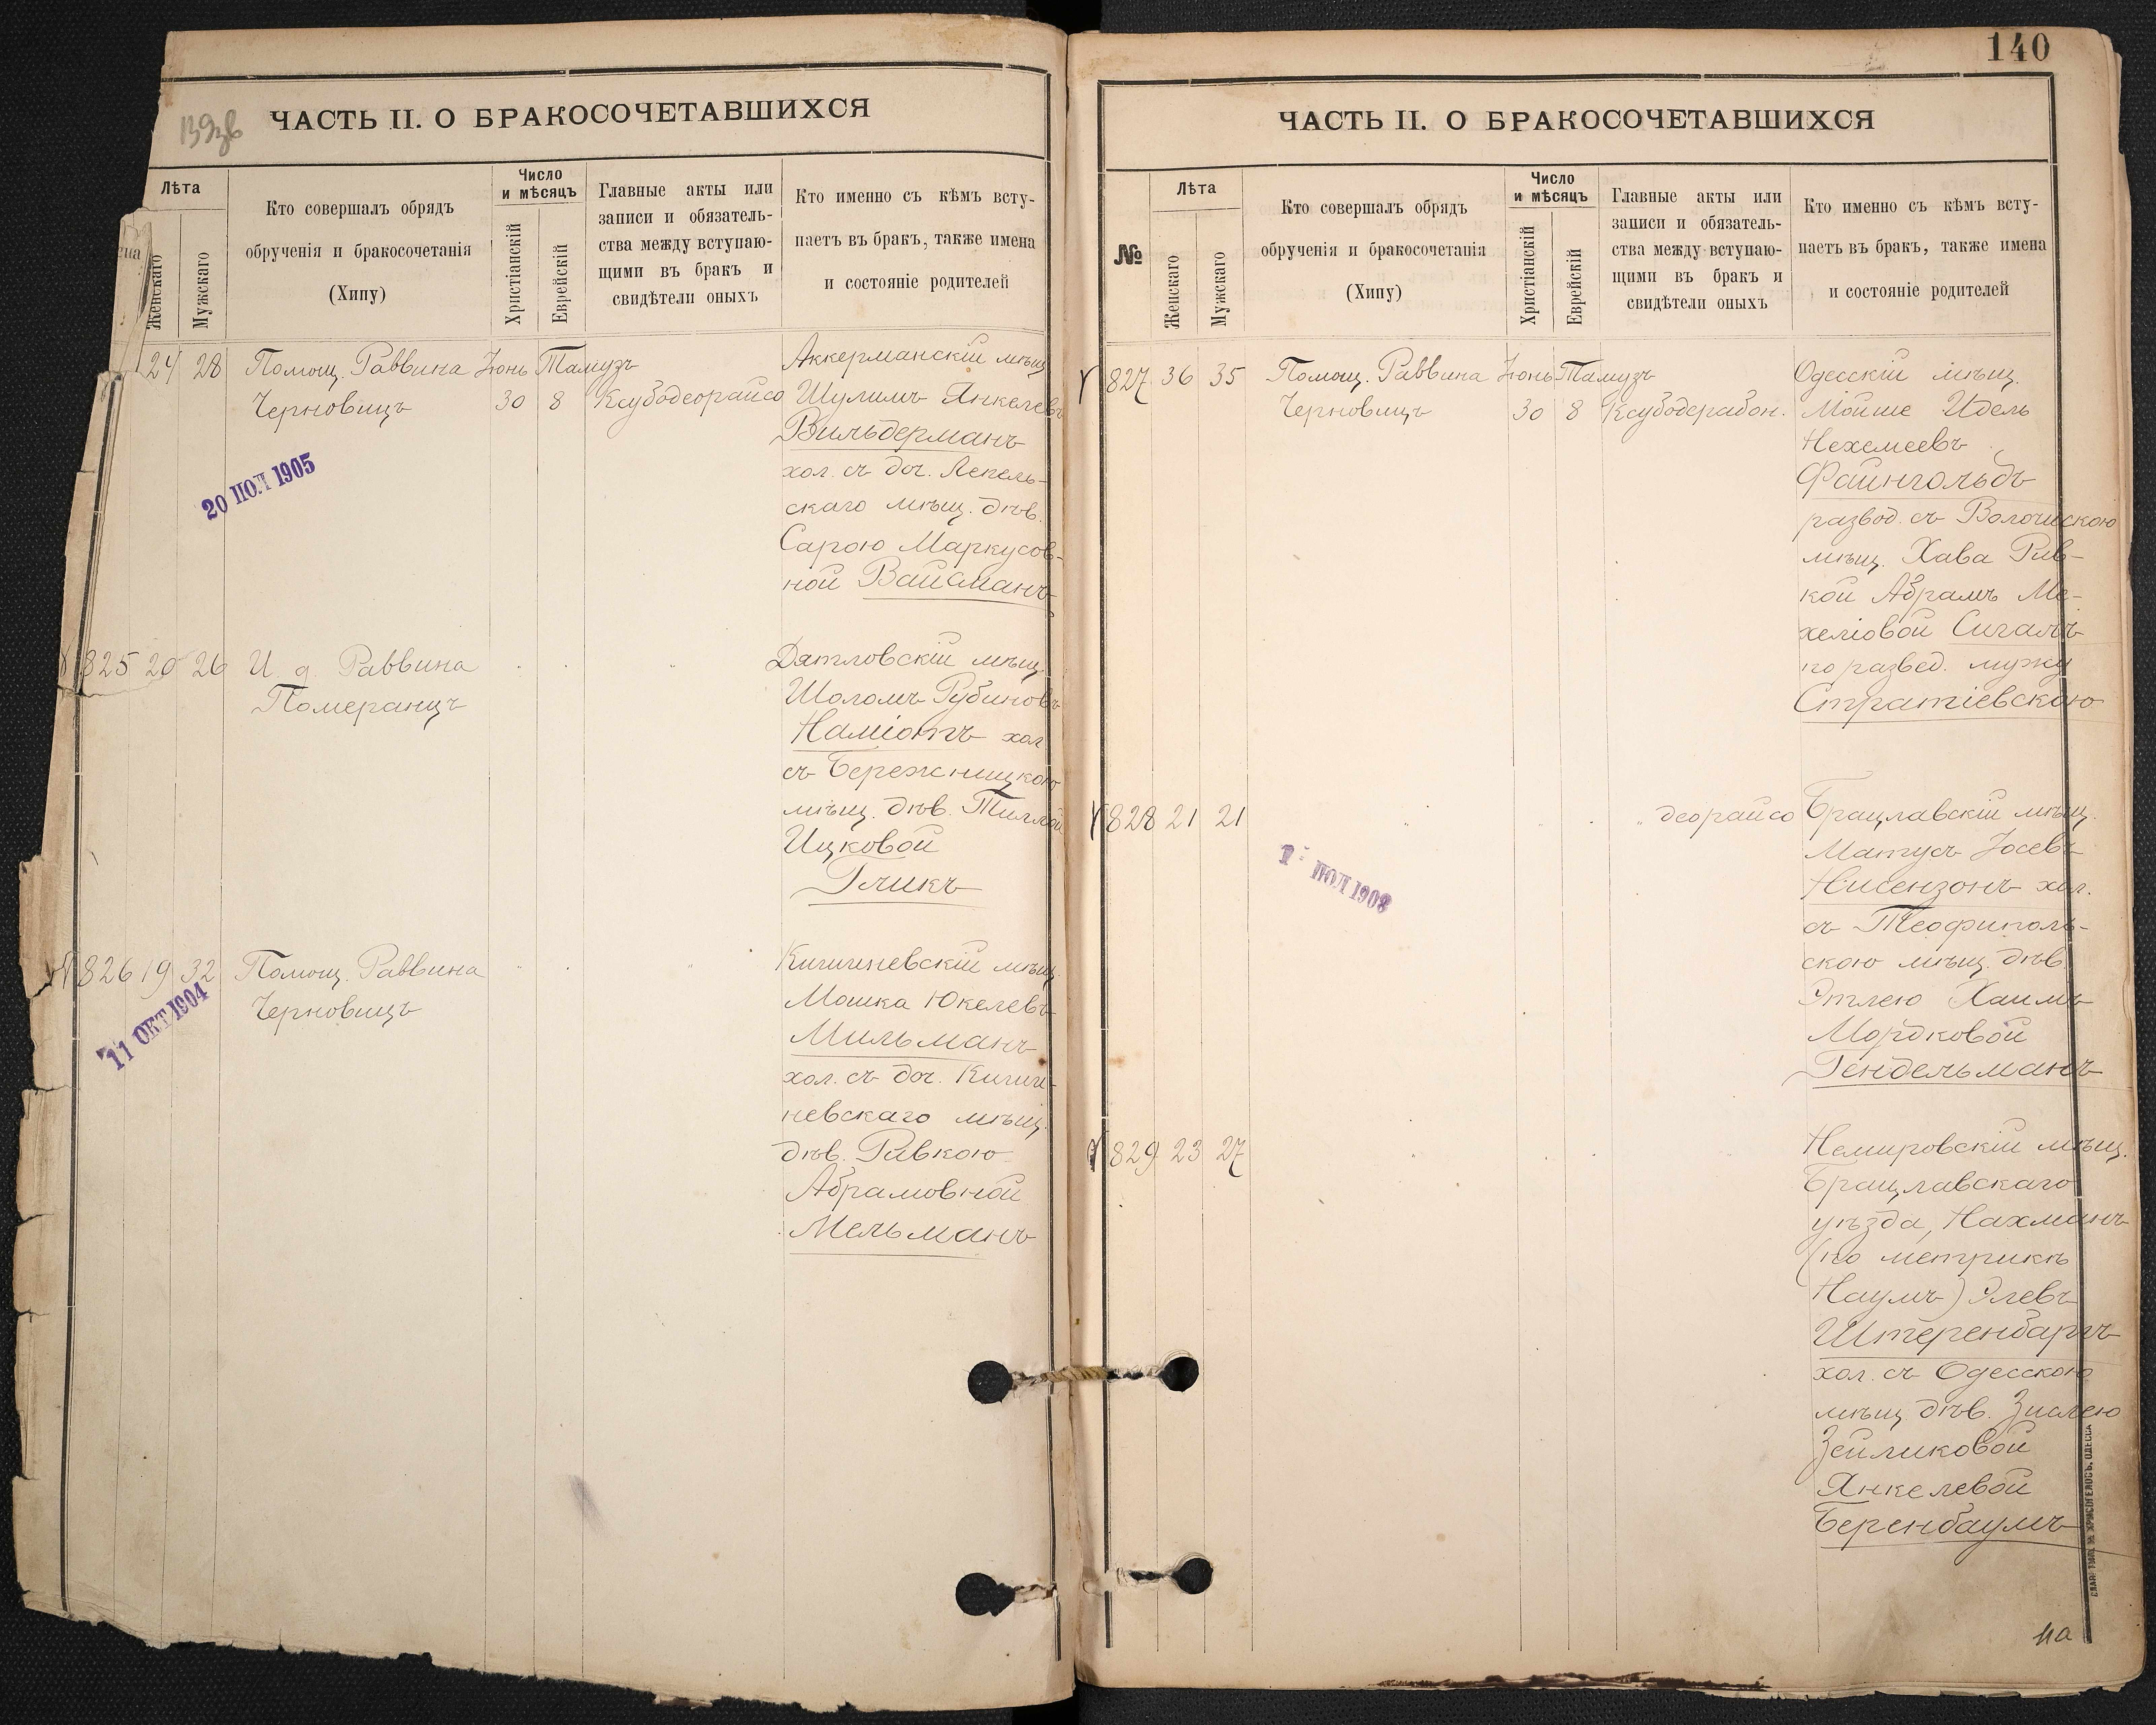 139зв
ЧАСТЬ II. О БРАКОСОЧЕТАВШИХСЯ
Лѣта
Женскаго
Мужскаго
Кто совершалъ обрядъ
обрученія и бракосочетанія
(Хипу)
Число
и мѣсяцъ
Христіанскій
Еврейскій
Главные акты или
записи и обязатель-
ства между вступаю-
щими въ бракъ и
свидѣтели оныхъ
Кто именно съ кѣмъ всту-
паетъ въ бракъ, также имена
и состояніе родителей
24 28 Помощ. Раввина Іюнь Тамузъ Аккерманскій мѣщ.
Черновицъ 30 8 Ксубодеорайсо Шулимъ Янкелевъ
Вильдерманъ
20 ІЮЛ 1905
хол. съ доч. Лепель-
скаго мѣщ. дѣв.
Сарою Маркусов-
ной Вайсманъ
825 20 26 И. д. Раввина Дятловскій мѣщ.
Померанцъ Шоломъ Рубиновъ
Наміотъ хол.
съ Бережницкою
мѣщ. дѣв. Тиллой
Ицковой
Гликъ
826 19 32 Помощ. Раввина Кишиневскій мѣщ.
Черновицъ Мошка Юкелевъ
11 ОКТ 1904
Мильманъ
хол. съ доч. Киши-
невскаго мѣщ.
дѣв. Ривкою
Абрамовной
Мельманъ
140
ЧАСТЬ II. О БРАКОСОЧЕТАВШИХСЯ
№
Лѣта
Женскаго
Мужскаго
Кто совершалъ обрядъ
обрученія и бракосочетанія
(Хипу)
Число
и мѣсяцъ
Христіанскій
Еврейскій
Главные акты или
записи и обязатель-
ства между вступаю-
щими въ бракъ и
свидѣтели оныхъ
Кто именно съ кѣмъ всту-
паетъ въ бракъ, также имена
и состояніе родителей
827 36 35 Помощ. Раввина Іюнь Тамузъ Одесскій мѣщ.
Черновицъ 30 8 Ксубодерабон. Мойше Идель
Нехемеевъ
Файнгольдъ
развод. съ Волочискою
мѣщ. Хава Рив-
кой Абрамъ Ме-
хеліовой Сигалъ
по развед. мужу
Стратіевскою
828 21 21 " деорайсо Брацлавскій мѣщ.
Матусъ Іосевъ
Нисензонъ хол.
съ Теофиполь-
скою мѣщ. дѣв.
Этлею Хаимъ
Мордковой
Гендельманъ
ІЮЛ 1908
829 23 27 Немировскій мѣщ.
Брацлавскаго
уѣзда, Нахманъ
(по метрикѣ
Наумъ) Элевъ
Штеренбаргъ
хол. съ Одесскою
мѣщ. дѣв. Зислею
Зейликовой
Янкелевой
Беренбаумъ